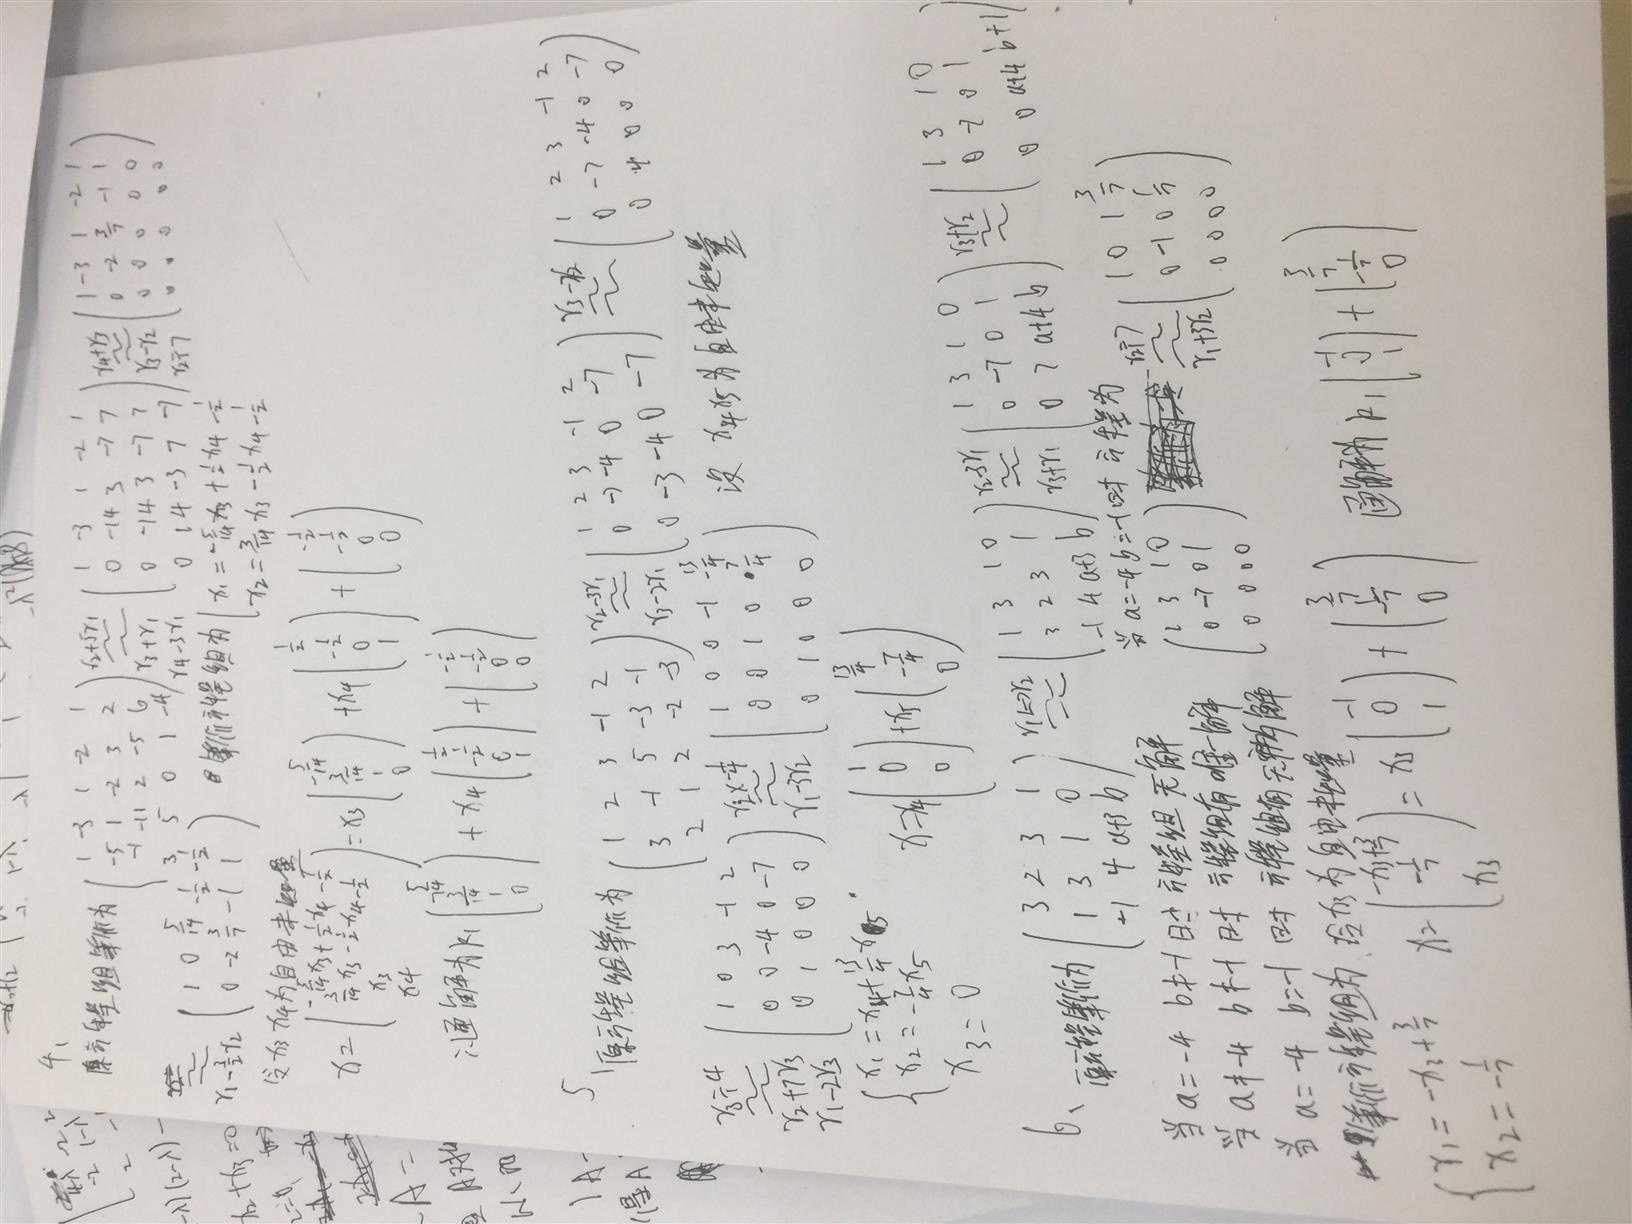 4、
原方程组等价为 ( 1 -3 1 -2 1
-5 1 -2 3 2
-1 -11 2 -5 6
3 5 0 1 -4 ) r2+5r1 r3+r1 r4-3r1 ( 1 -3 1 -2 1
0 -14 3 -7 7
0 -14 3 -7 7
0 14 -3 7 -7 ) r4+r3 r3-r2 r2÷7 ( 1 -3 1 -2 1
0 -2 3/7 -1 1
0 0 0 0 0
0 0 0 0 0 )
r1-3/2r2 ( 1 0 5/14 -1/2 -1/2
0 -2 3/7 -1 1 ) 等价方程组为 { x1=-5/14x3+1/2x4-1/2
x2=3/14x3-1/2x4-1/2
令x3 x4为自由未知量
x= ( -5/14x3+1/2x4-1/2
3/14x3-1/2x4-1/2
x3
x4 ) =x3 ( -5/14
3/14
1
0 ) +x4 ( 1/2
-1/2
0
1 ) + ( -1/2
-1/2
0
0 )
∴通解为k1 ( -5/14
3/14
1
0 ) +x4 ( 1/2
-1/2
0
1 ) + ( -1/2
-1/2
0
0 )
5
原方程组等价为 ( 1 2 3 -1 2
3 -1 5 -3 -1
2 1 2 -2 -3 ) r2-3r1 r3-2r1 ( 1 2 3 -1 2
0 -7 -4 0 -7
0 -3 -4 0 -7 ) r3-r2 ( 1 2 3 -1 2
0 -7 -4 0 -7
0 4 0 0 0 )
r3÷4 r2+7r3 r1-2r3 ( 1 0 3 -1 2
0 0 -4 0 -7
0 1 0 0 0 ) r2×-1/4 r1-3r2 ( 1 0 0 -1 -13/4
0 0 1 0 7/4
0 1 0 0 0 ) 设 x4 x5为自由未知量
{ x1=x4+13/4x5
x2=-7/4x5
x3=0
x=x4 ( 1
0
0 ) +x5 ( 13/4
-7/4
0 )
6、 原方程等价为 ( 3 2 3 1
1 3 1 0
-1 4 a+3 b ) r1↔r2 ( 1 3 1 0
3 2 3 1
-1 4 a+3 b ) r2-3r1 r3+r1 ( 1 3 1 0
0 -7 0 1
0 7 a+4 b ) r3+r2 ( 1 3 1 0
0 -7 0 1
0 0 a+4 b+1 )
当a=-4 b≠-1时 方程组无解
当a≠-4 b≠-1时 方程组有唯一解
当a=-4 b=-1时 方程组有无穷解
当a=-4 b=-1时 方程为
( 1 3 1 0
0 -7 0 1
0 0 0 0 ) r2÷7 r1+3r2 ( 1 0 1 3/7
0 -1 0 1/7
0 0 0 0 )
等价方程组为 设x3为自由未知量
{ x1=-x3+3/7
x2=-1/7
x= ( -x3+3/7
-1/7
x3 ) =x3 ( -1
0
1 ) + ( 3/7
-1/7
0 ) 通解为k1 ( -1
0
1 ) + ( 3/7
-1/7
0 )